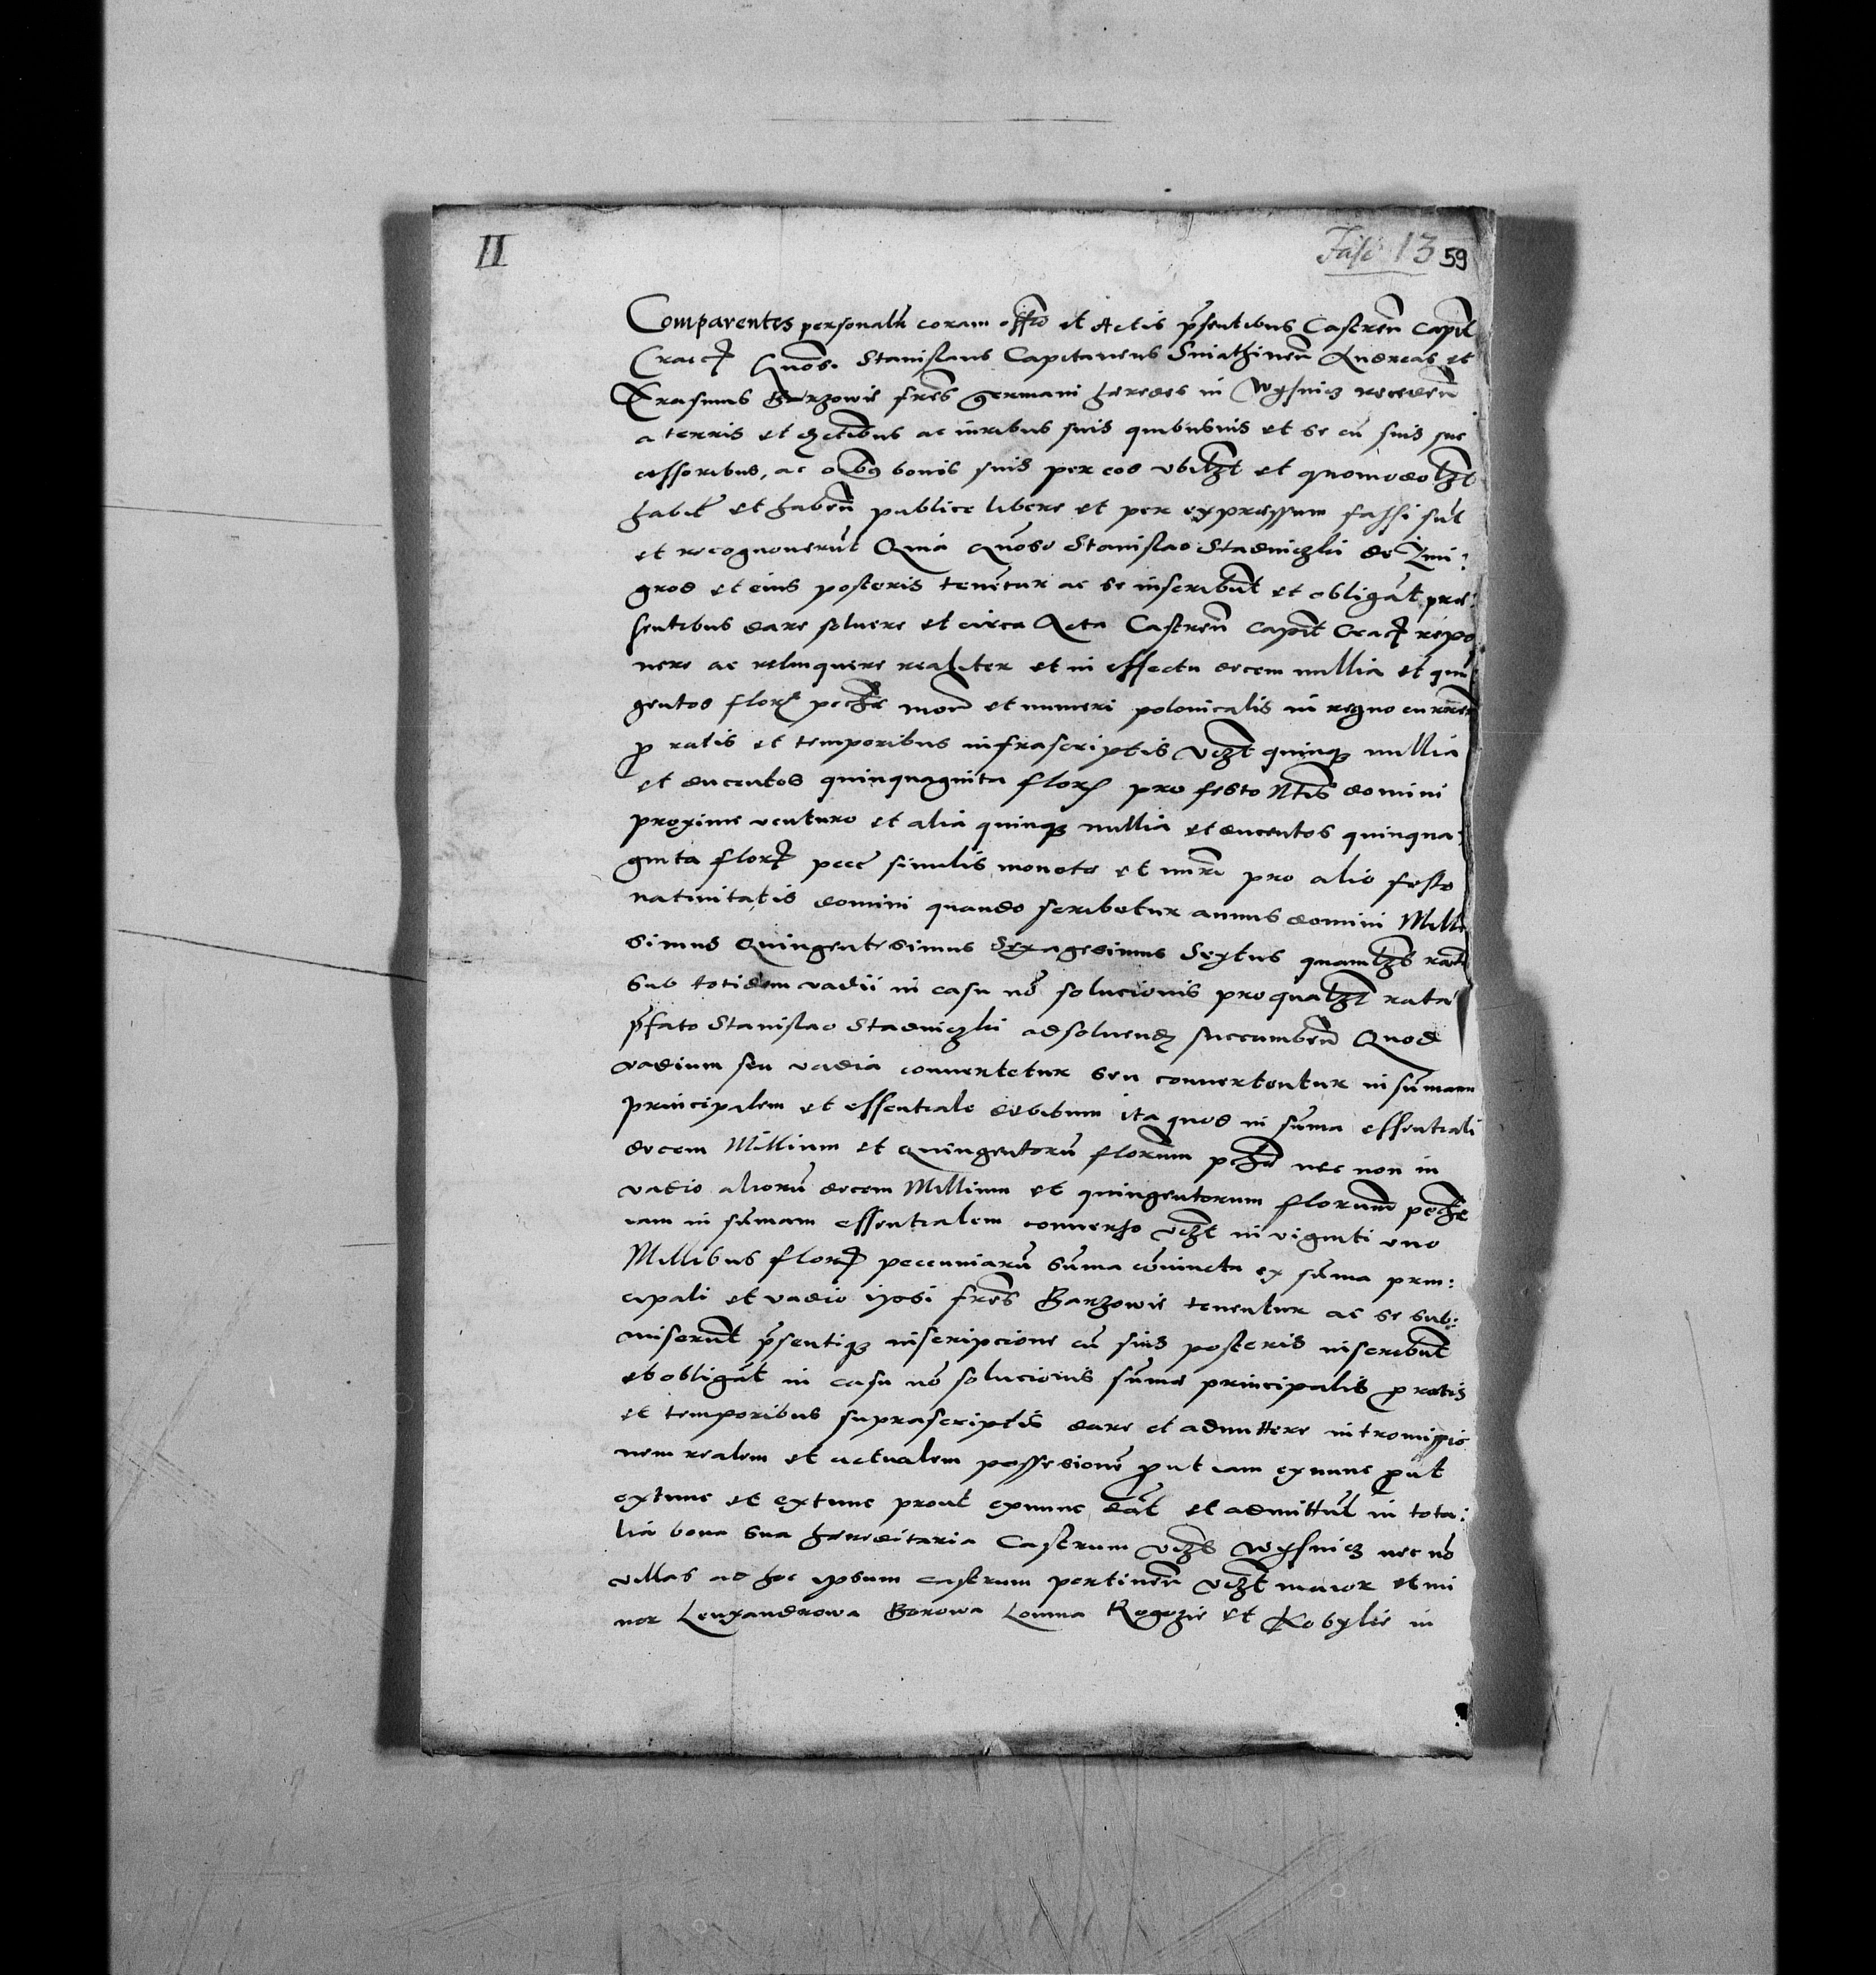 II
Fasc 13 59
Comparentes personalr coram offo et Actis pnsentibus Castren Capit
Crac Gnosi Stanislaus Capitaneus Sniathinen Andreas et
Erasmus Barzowie fres germani heredes in Wysnicz receden
a terris et ac iuribus suis quibusuis et se cu suis suc
cessoribus, ac oibq bonis suis per eos vbilzt et quomodolzt
habit et haben publice libere et per expressum fassi sut
et recognouerut Quia Gnoso Stanislao Stadniczki de Zmi:
grod et eius posteris tenetur ac se inscribut et obligat pre:
sentibus dare soluere et circa Acta Castren Capit Crac repo
nere ac relinquere realiter et in effectu decem millia et quin
gentos flor pecuie mon et numeri polonicalis in regno curren
p ratis et temporibus infrascriptis vczt quinq millia
et ducentos quinquaginta flor pro festo Ntis domini
proxime venturo et alia quinq millia et ducentos quinqua:
ginta flor pece similis monete et nuri pro alio festo
natiuitatis domini quando scribetur annus domini Mille
simus Quingentesimus Sexagesimus Sextus quamlzb rata
sub totidem vadii in casu no solucionis pro qualzt rata
pfato Stanislao Stadniczki adsoluend succumben Quod
vadium seu vadia conuertetur seu conuertentur in sumam
principalem et essentiale debitum ita quod in suma essentiali
decem Millium et Quingentoru florenum pecuie nec non in
vadio alioru decem Millium et quingentorum florenum pecuie
iam in sumam essentialem conuerso vczt in viginti vno
Millibus flor pecuniaru suma coniuncta ex suma prin:
cipali et vadio ipsi fres Barzowie tenentur ac se sub:
miserut psentiq inscripcione cu suis posteris inscribut
et obligat in casu no solucionis sume principalis p ratis
et temporibus suprascriptis dare et admittere intromissio
nem realem et actualem possesione put iam exnunc put
extunc et extunc prout exnunc dat et admittut in tota:
lia bona sua hereditaria Castrum vczt Wysnicz nec no
villas ad hoc ipsum castrum pertinen vczt maior et mi
nor Lenxandrowa Borowa Lomna Rogozie et Kobylie in